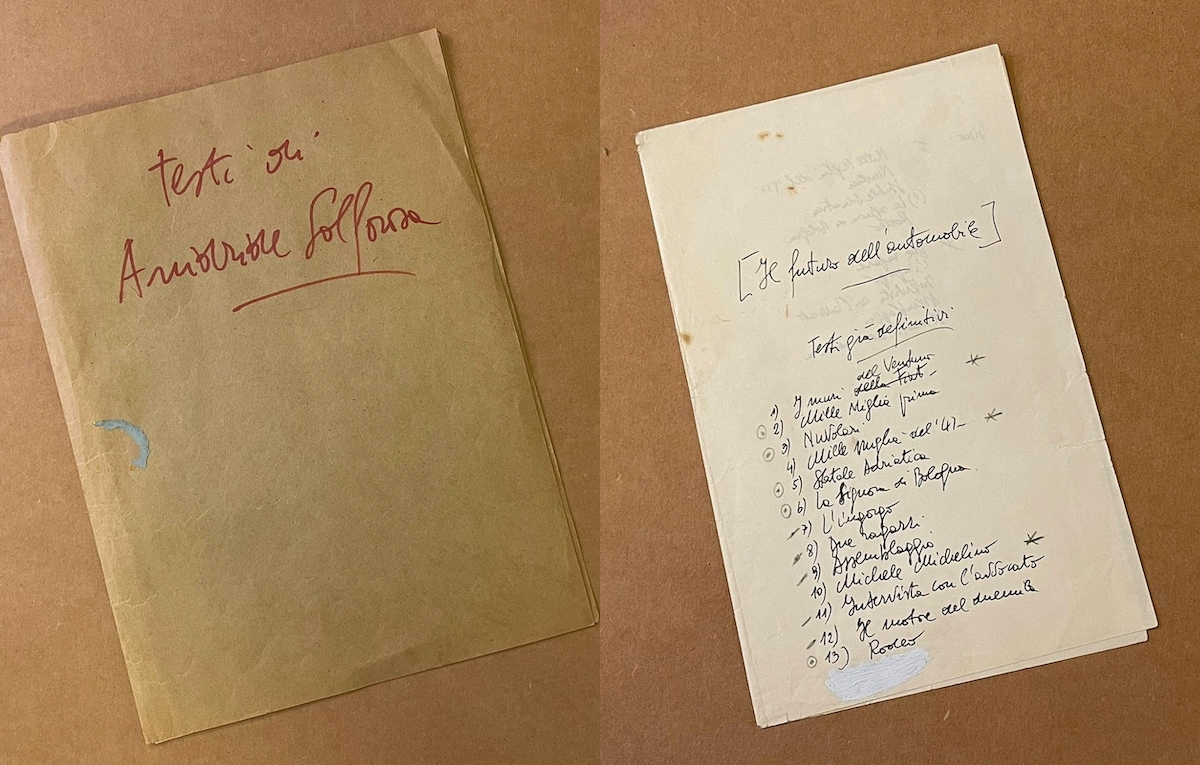 Testi di
Anidride Solforosa
[Il futuro dell'automobile]
Testi già definitivi
del Venduno
1) I muri della Fiat
2) Mille Miglia prima
3) Nuvolari
4) Mille miglia del '47
5) Statale Adriatica
6) La signora di Bologna
7) L'ingorgo
8) Due ragazzi
9) Assemblaggio
10) Michele Michelino
11) Intervista con l'avvocato
12) Il motore del duemila
13) Rodeo